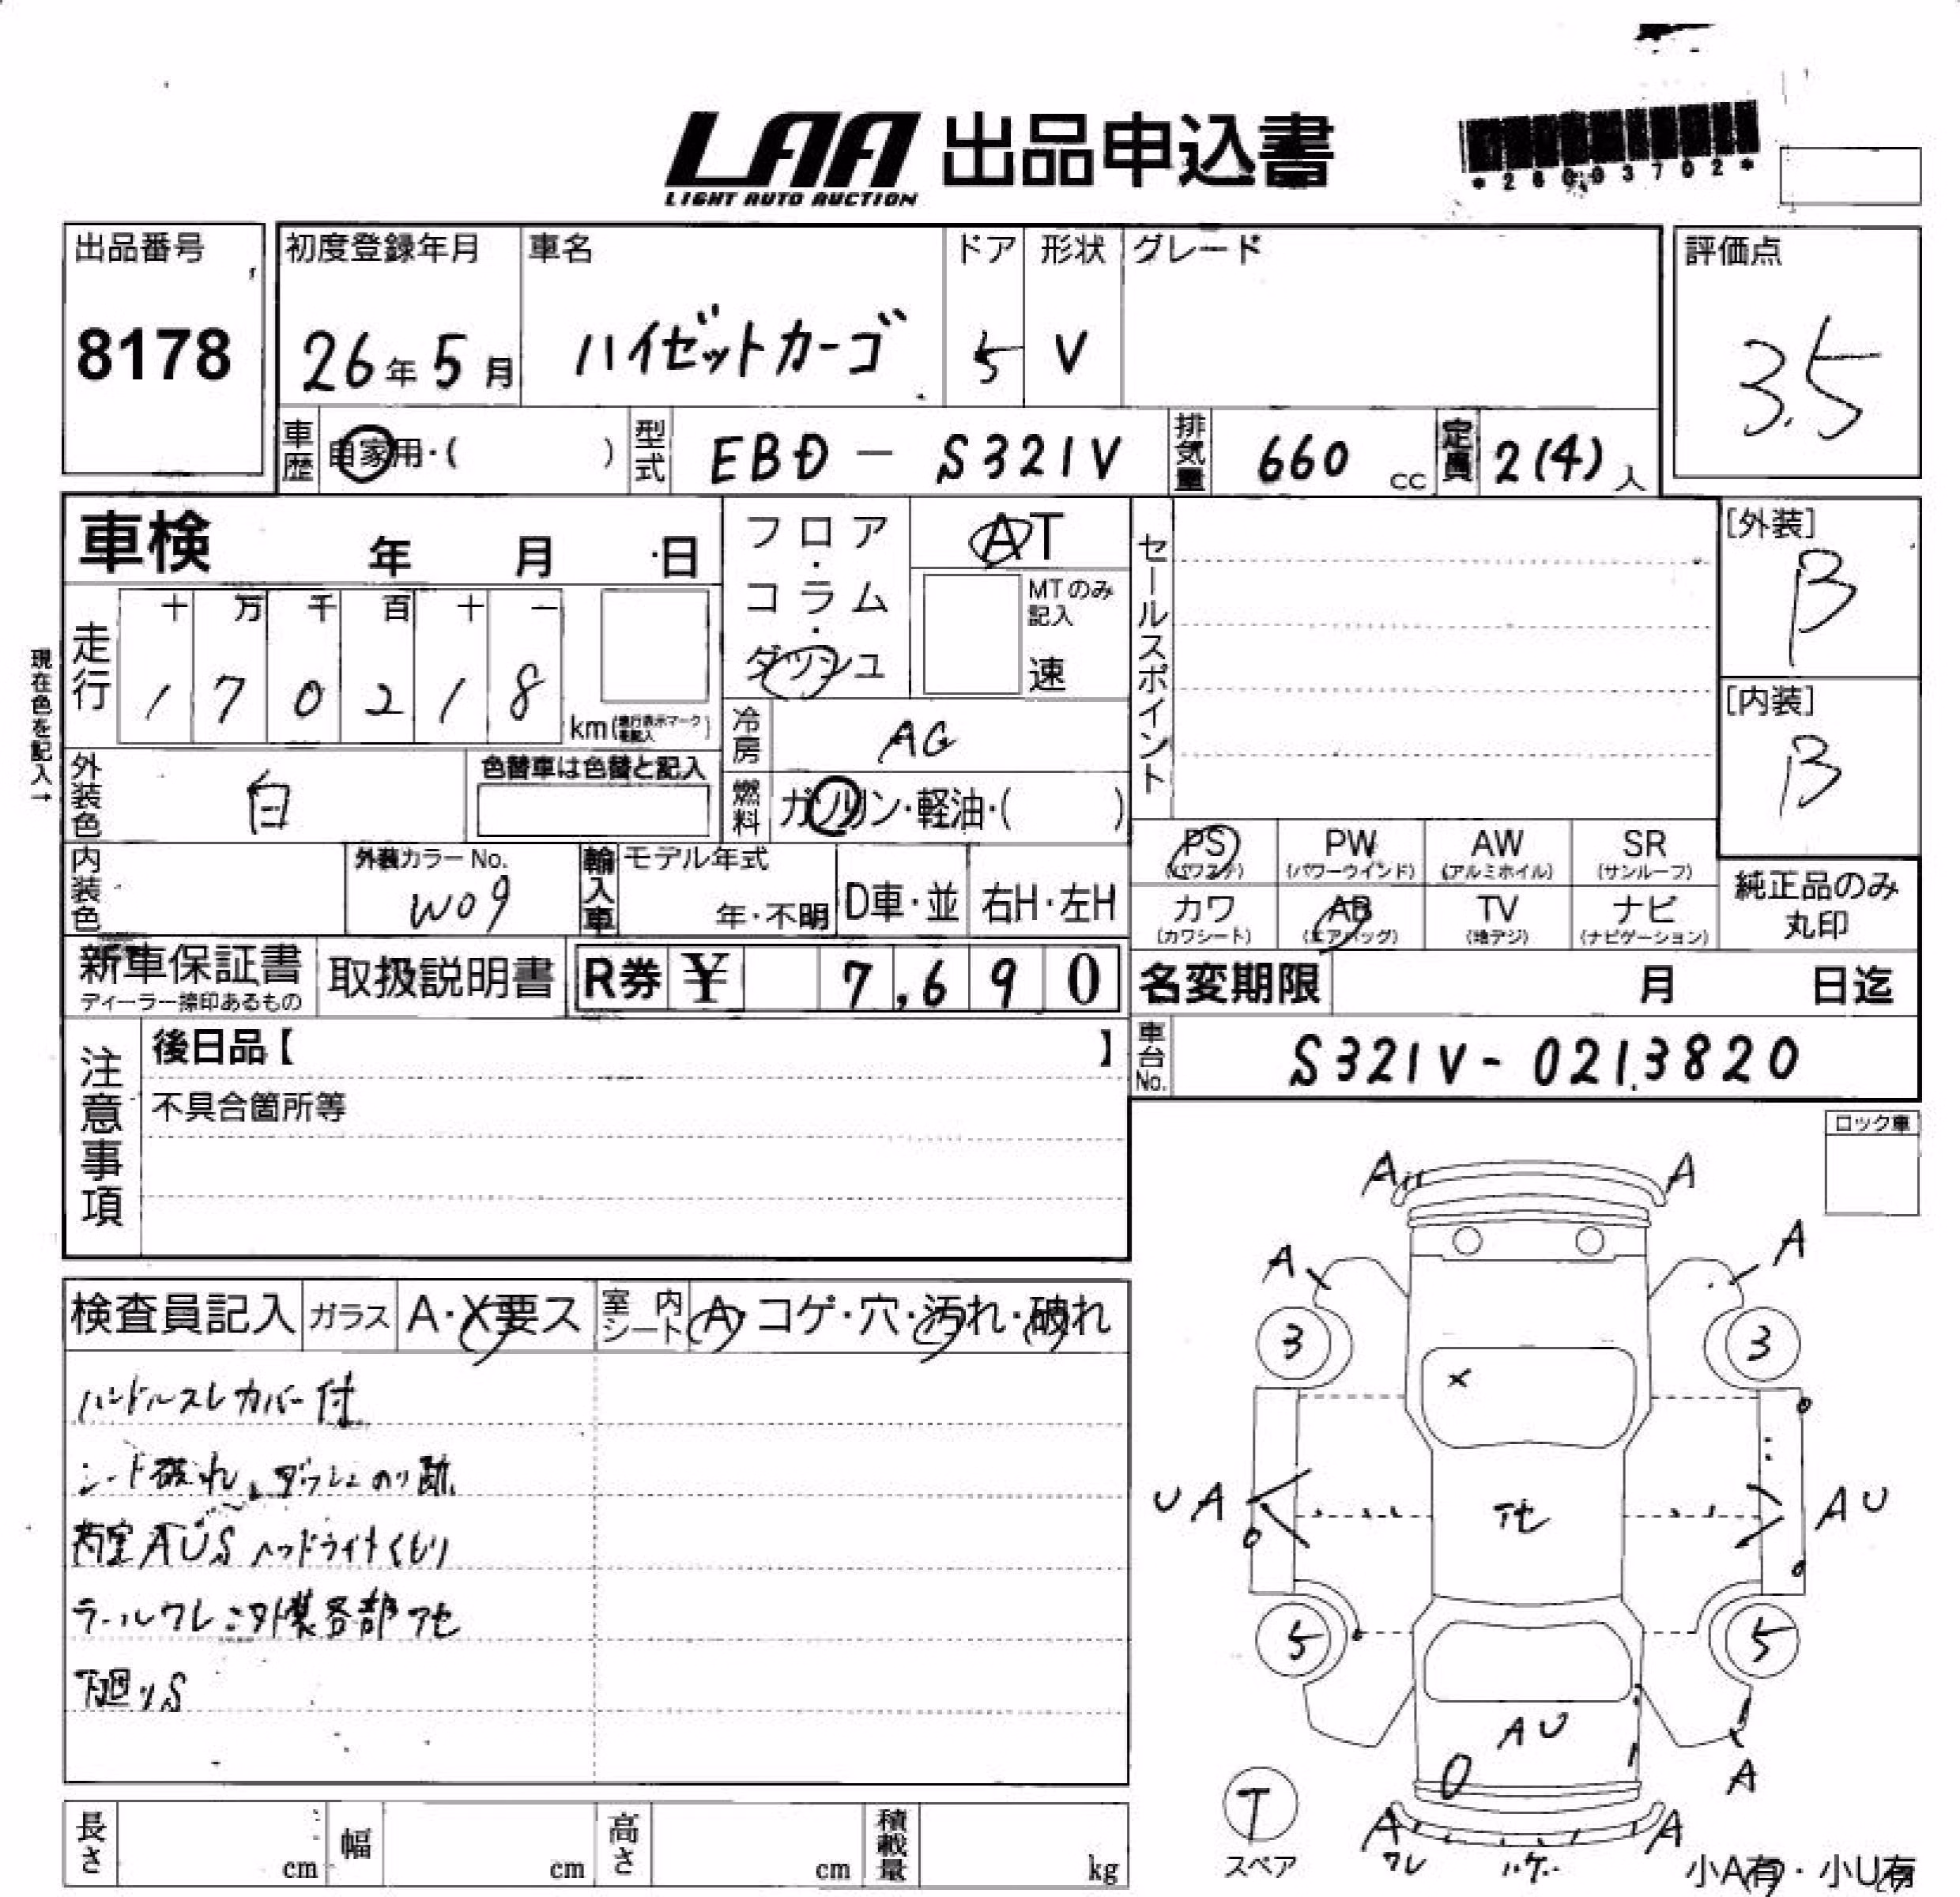 LAA 出品申込書
LIGHT AUTO AUCTION
*26003702*
出品番号
8178
初度登録年月
26年5月
車名
ハイゼットカーゴ
ドア
5
形状
V
グレード
評価点
3.5
車歴
自家用・( )
型式
EBD - S321V
排気量
660 cc
定員
2(4)人
車検 年 月 日
フロア・コラム・ダッシュ
AT
MTのみ記入
速
セールスポイント
[外装]
B
[内装]
B
現在色を記入→
走行
十 万 千 百 十 一
1 7 0 2 1 8
km(走行表示マーク要記入)
冷房
AC
外装色
白
色替車は色替と記入
燃料
ガソリン・軽油・( )
内装色
外装カラーNo.
W09
輸入車
モデル年式
年・不明
D車・並
右H・左H
PS
(パワステ)
PW
(パワーウインド)
AW
(アルミホイル)
SR
(サンルーフ)
カワ
(カワシート)
AB
(エアバッグ)
TV
(地デジ)
ナビ
(ナビゲーション)
純正品のみ
丸印
新車保証書
ディーラー捺印あるもの
取扱説明書
R券 ¥ 7,690
名変期限 月 日迄
車台No.
S321V-0213820
注意事項
後日品【 】
不具合箇所等
ロック車
検査員記入
ガラス
A・X要ス
室内シート
A・コゲ・穴・汚れ・破れ
ハンドルスレ カバー付
シート破れ、ダッシュのり跡
荷室AUS ヘッドライトくもり
外装各部アセ
下廻りS
A A
A A
3 3
X
U A
アセ
A U
5 5
A U
A
T
スペア
A A
ワレ
ハゲ
小A有・小U有
長さ cm
幅 cm
高さ cm
積載量 kg